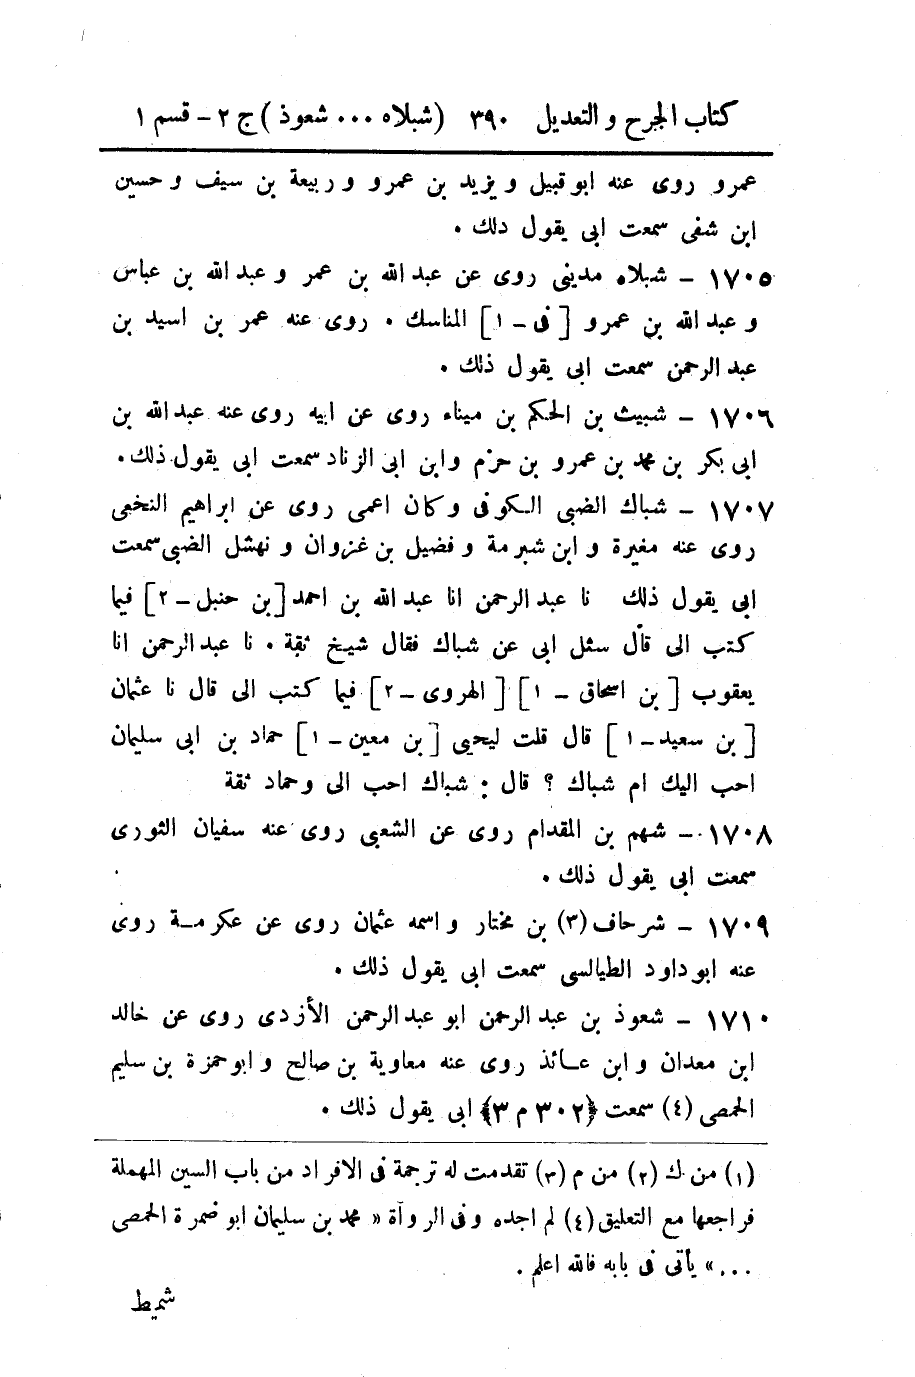 كتاب الجرح والتعديل ٣٩٠ (شبلاه ... شعوذ) ج ٢ - قسم ١
عمرو روى عنه ابو قبيل ويزيد بن عمرو وربيعة بن سيف وحسين
ابن شفى سمعت ابى يقول ذلك .
١٧٠٥ - شبلاه مدينى روى عن عبد الله بن عمر وعبد الله بن عباس
وعبد الله بن عمرو [فى - ١] المناسك . روى عنه عمر بن اسيد بن
عبد الرحمن سمعت ابى يقول ذلك .
١٧٠٦ - شبيث بن الحكم بن ميناء روى عن ابيه روى عنه عبد الله بن
ابى بكر بن محمد بن عمرو بن حزم وابن ابى الزناد سمعت ابى يقول ذلك .
١٧٠٧ - شباك الضبى الكوفى وكان اعمى روى عن ابراهيم النخعى
روى عنه مغيرة وابن شبرمة وفضيل بن غزوان ونهشل الضبى سمعت
ابى يقول ذلك نا عبد الرحمن انا عبد الله بن احمد [بن حنبل - ٢] فيما
كتب الى قال سئل ابى عن شباك فقال شيخ ثقة . نا عبد الرحمن انا
يعقوب [بن اسحاق - ١] [الهروى - ٢] فيما كتب الى قال نا عثمان
[بن سعيد - ١] قال قلت ليحيى [بن معين - ١] حماد بن ابى سليمان
احب اليك ام شباك ؟ قال : شباك احب الى وحماد ثقة
١٧٠٨ - شهم بن المقدام روى عن الشعبى روى عنه سفيان الثورى
سمعت ابى يقول ذلك .
١٧٠٩ - شرحاف (٣) بن مختار واسمه عثمان روى عن عكرمة روى
عنه ابو داود الطيالسى سمعت ابى يقول ذلك .
١٧١٠ - شعوذ بن عبد الرحمن ابو عبد الرحمن الأزدى روى عن خالد
ابن معدان وابن عائذ روى عنه معاوية بن صالح وابو حمزة بن سليم
الحمصى (٤) سمعت ﴿٣٠٢ م ٣﴾ ابى يقول ذلك .
(١) من ك (٢) من م (٣) تقدمت له ترجمة فى الافراد من باب السين المهملة
فراجعها مع التعليق (٤) لم اجده وفى الرواة « محمد بن سليمان ابو ضمرة الحمصى
... » يأتى فى بابه فالله اعلم .
شميط